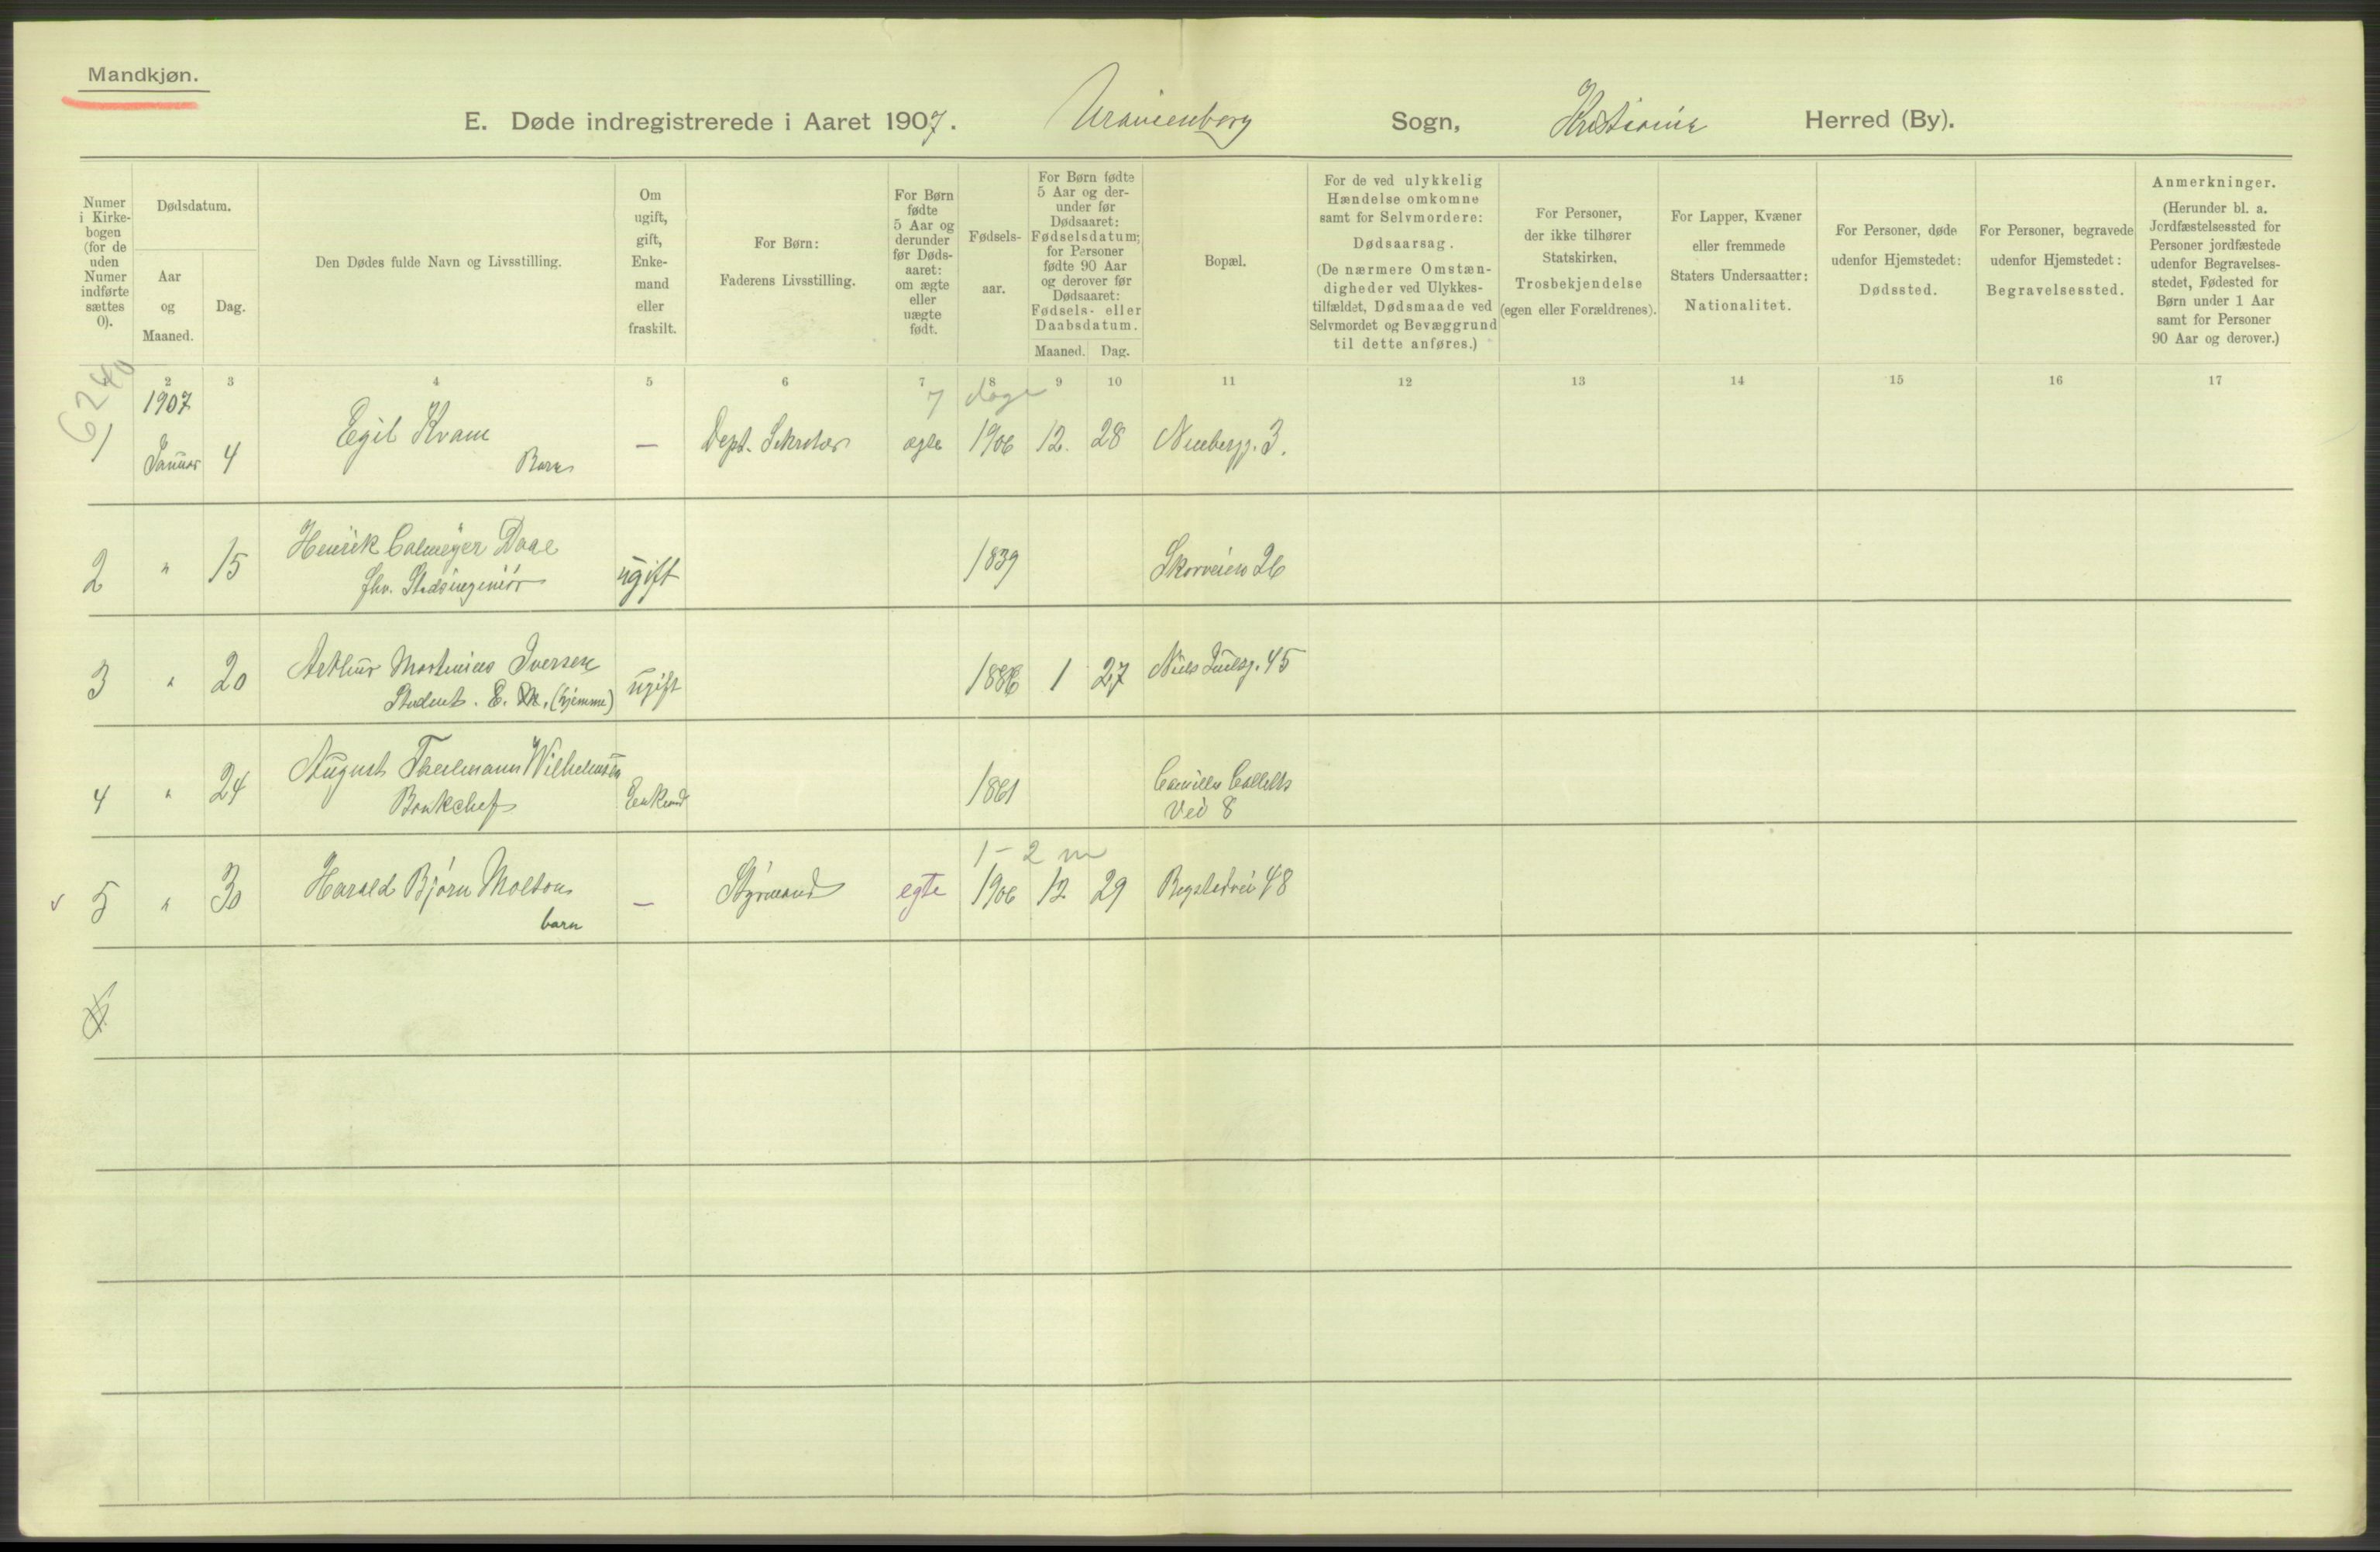 Mandkjøn.
E. Døde indregistrerede i Aaret 1907. Uranienborg Sogn, Kristiania Herred (By).
Numer i Kirkebogen (for de uden Numer indførte sættes 0).
Dødsdatum.
Aar og Maaned.
Dag.
Den Dødes fulde Navn og Livsstilling.
Om ugift, gift, Enkemand eller fraskilt.
For Børn:
Faderens Livsstilling.
For Børn fødte 5 Aar og derunder før Dødsaaret: om ægte eller uægte født.
Fødselsaar.
For Børn fødte 5 Aar og derunder før Dødsaaret: Fødselsdatum; for Personer fødte 90 Aar og derover før Dødsaaret: Fødsels- eller Daabsdatum.
Maaned. Dag.
Bopæl.
For de ved ulykkelig Hændelse omkomne samt for Selvmordere:
Dødsaarsag.
(De nærmere Omstændigheder ved Ulykkestilfældet, Dødsmaade ved Selvmordet og Bevæggrund til dette anføres.)
For Personer, der ikke tilhører Statskirken, Trosbekjendelse (egen eller Forældrenes).
For Lapper, Kvæner eller fremmede Staters Undersaatter:
Nationalitet.
For Personer, døde udenfor Hjemstedet:
Dødssted.
For Personer, begravede udenfor Hjemstedet:
Begravelsessted.
Anmerkninger.
(Herunder bl. a. Jordfæstelsessted for Personer jordfæstede udenfor Begravelsesstedet, Fødested for Børn under 1 Aar samt for Personer 90 Aar og derover.)
2 3 4 5 6 7 8 9 10 11 12 13 14 15 16 17
6240
1907
7 dage
1 Januar 4 Egil Kvam — Dept. Sekretær ægte 1906 12. 28 3.
Barn
2 " 15 Henrik Calmeyer Daae ugift 1839 Skovveien 26
fhv. Stadsingeniør
3 " 20 Arthur Martinius Iversen ugift 1886 1 27 Niels Juelsg. 45
Student. E. M. (hjemme)
4 " 24 August Wilhelmsen Enkemd 1861 Camilla Colletts
Bankchef Vei 8
1 - 2 m
v 5 " 30 Harald Bjørn — Styrmand egte 1906 12 29 48
barn